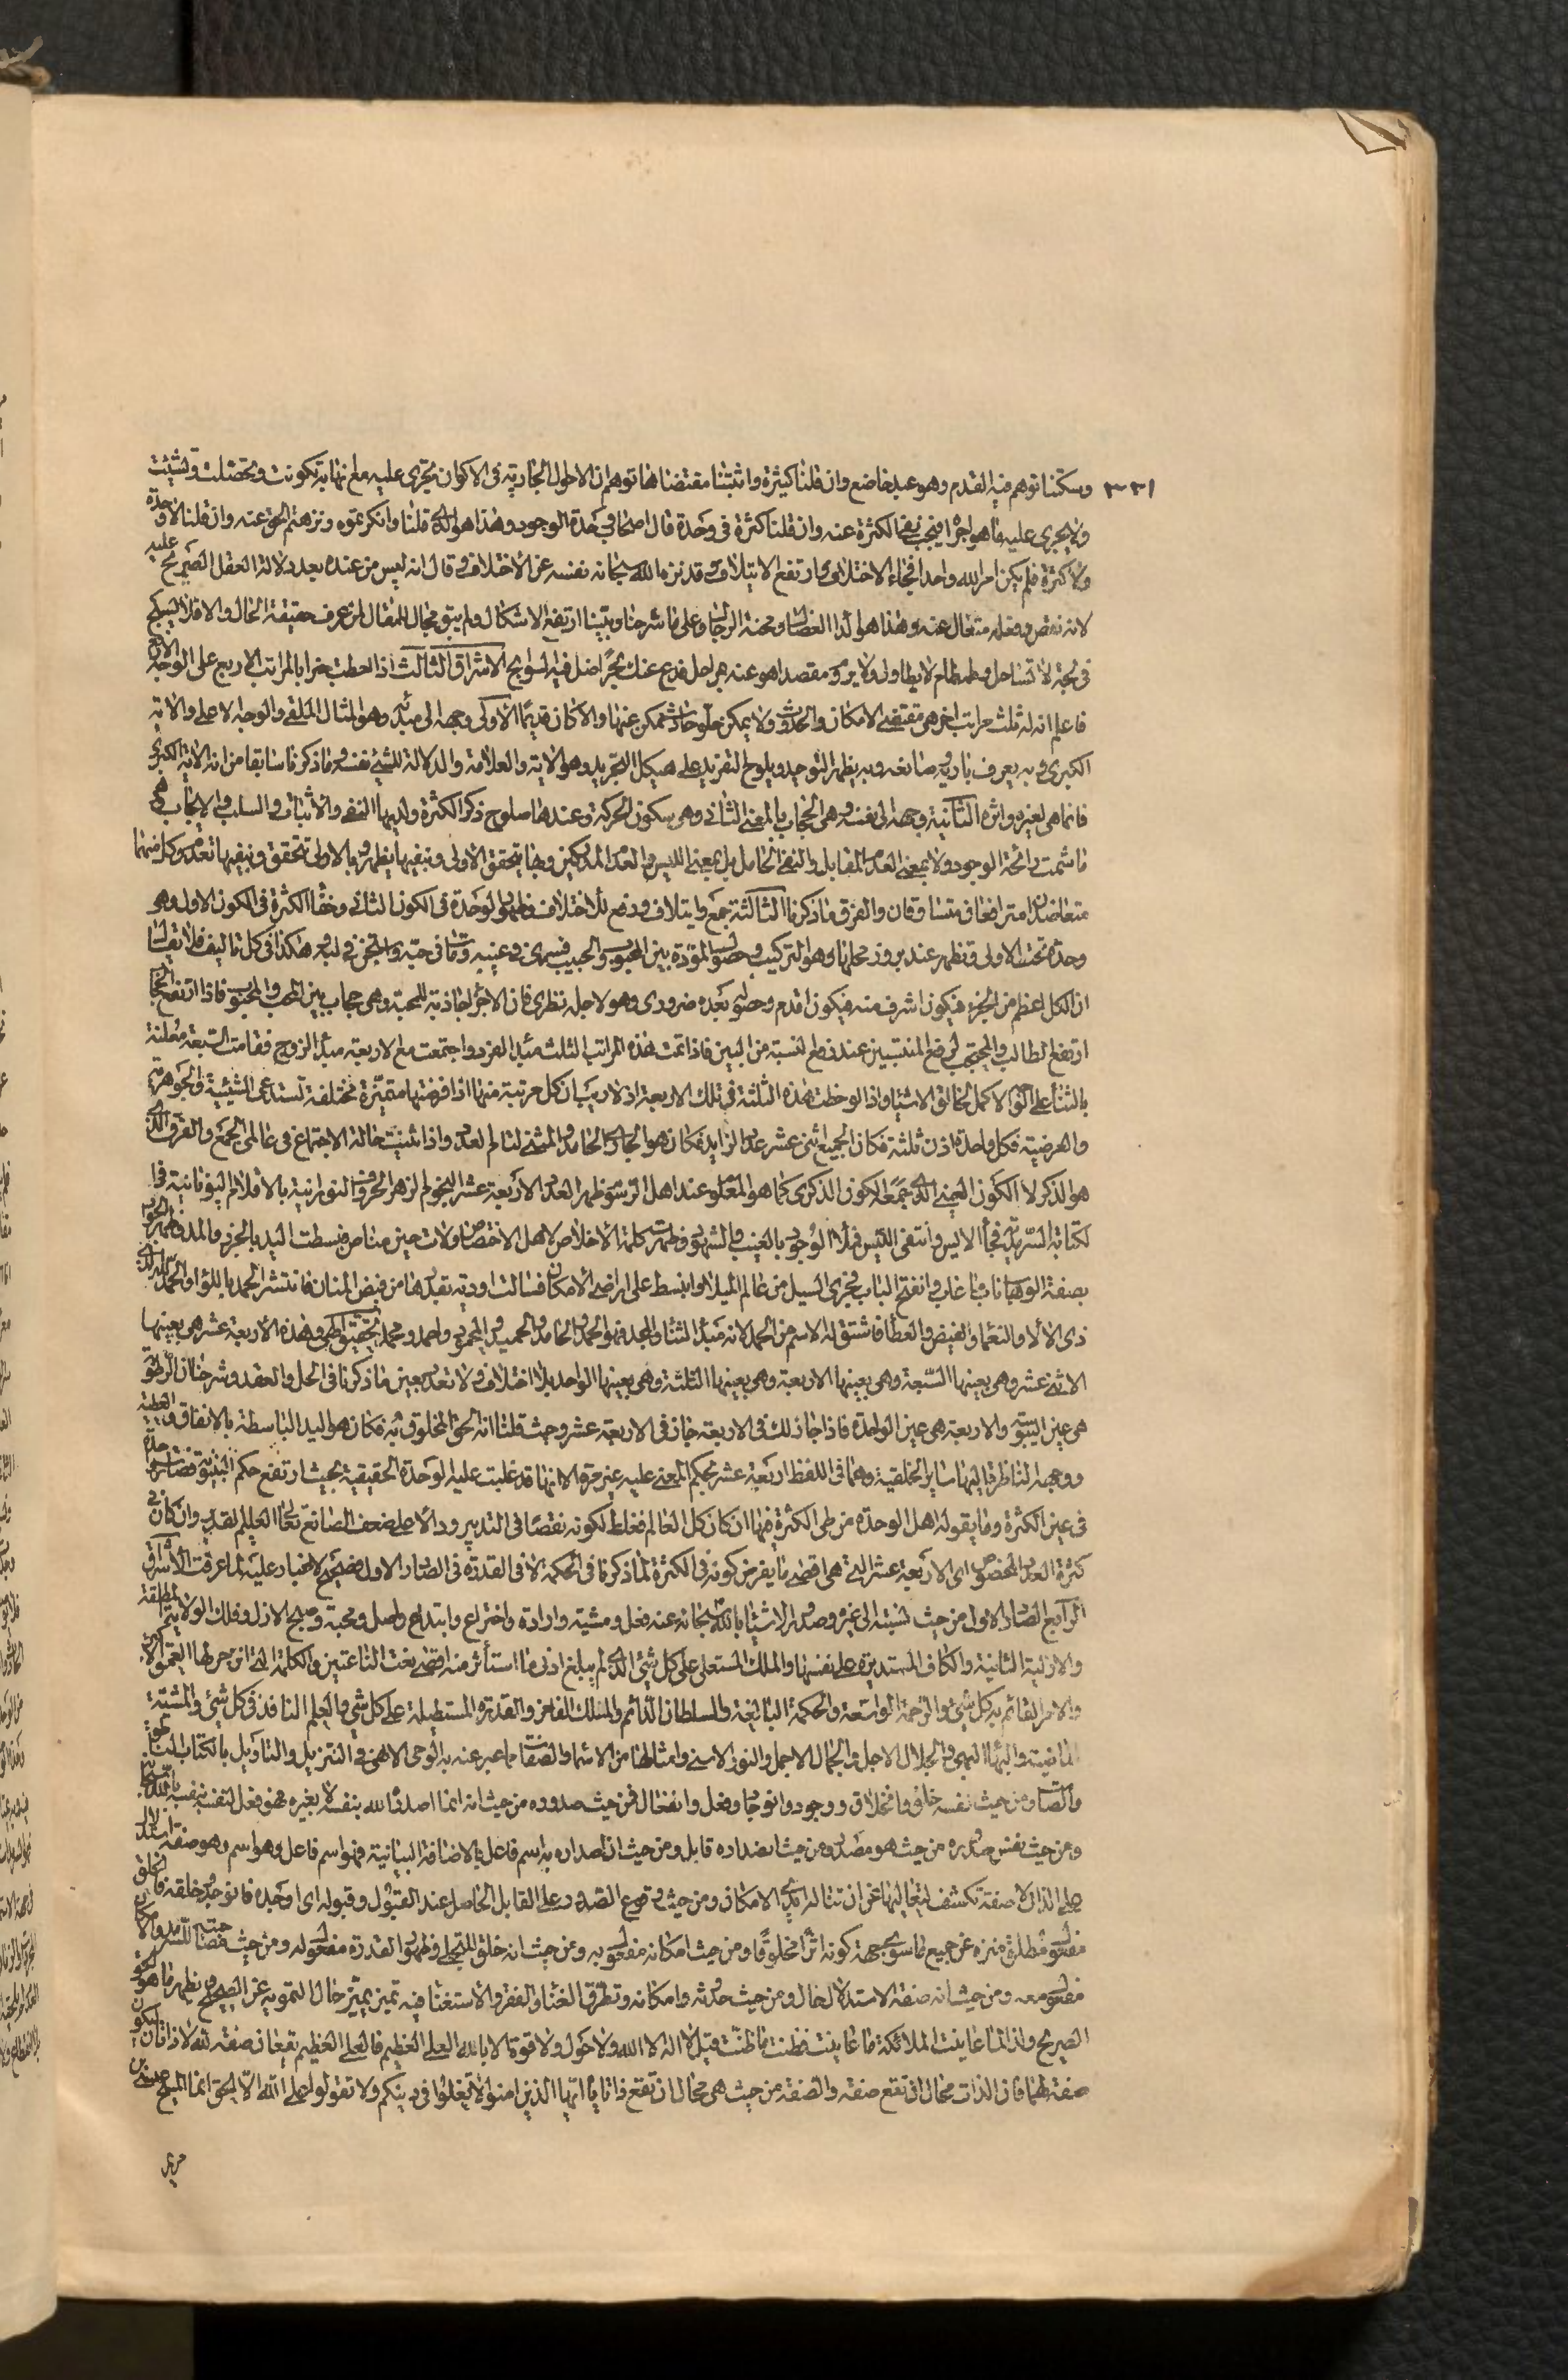 ٣٣١ وسكتنا توهم فيه القدم وهو عبد خاضع وان قلنا كثرة واثبتنا مقتضاها توهم ان الاحوال الجارية في الاكوان يجري عليه مع انها به تكونت وتحصلت وتشيئت
ولا يجري عليه ما هو اجراه فيجب نفي الكثرة عنه وان قلنا كثرة في وحدة قال اصحاب وحدة الوجود وهذا هو الذي قلنا وانكرتموه ونزهتم الحق عنه وان قلنا لا وحدة
ولا كثرة فلم يكن امر الله واحدا فجاء الاختلاف وارتفع الايتلاف وقد نزه الله سبحانه نفسه عن الاختلاف وقال انه ليس من عنده بعد دلالة العقل الصريح عليه
لانه نقص وفعله متعال عنه وهذا هو الداء العضال ومحنة الرجال وعلى ما شرحنا وبينا ارتفع الاشكال ولم يبق مجال للمقال لمن عرف حقيقة الحال والا فلا يسبح
في لجة لا تساحل وطمطام لا يطاول ولا يروم مقصدا هو عنه مراحل فدع عنك بحرا ضل فيه السوابح الاشراق الثالث اذا احطت خبرا بالمراتب الاربع على الوجه الاول
فاعلم ان له ثلث مراتب اخر هي مقتضى الامكان والحدوث ولا يمكن خلو حادث ممكن عنها والا كان قديما الاولى وجهه الى مبدئه وهو المثال الملقى والوجه الاعلى والاية
الكبرى وبه يعرف باريه وصانعه وبه يظهر التوحيد ويلوح التفريد على هيكل التجريد وهو الاية والعلامة والدلالة للشيء نفسه وما ذكرنا سابقا من انه الاية الكبرى
فانما هي لغيره واثره الثانية وجهه الى نفسه وهي الحجاب بالمعنى الثاني وهي سكون الحركة وعندها صلوح ذكر الكثرة ولديها النفي والاثبات والسلب والايجاب هي
ما شمت رائحة الوجود ولا بمعنى العدم المقابل والنفي الحامل بل بمعنى الليس والعدم المذكورين وبها يتحقق الاولى وبنفيها يظهر وبالاولى تتحقق وبنفيها تعدم وكل منهما
متعاضدان مترافعان متساوقان والفرق ما ذكرنا الثالثة جمع وايتلاف ودفع للاختلاف وظهور الوحدة في الكون الثاني وخفاء الكثرة في الكون الاول وهو
وحدة تحت الاولى وتظهر عند بروز محلها وهو التركيب وحصول المودة بين المحبوب والحبيب
ان الكل اعظم من الجزء فيكون اشرف منه فيكون اقدم وحصوله بعده ضروري وهو لاجل نظري فان الاجزاء جاذبة للمحبة وهي حجاب بين المحب والمحبوب فاذا ارتفع الحجاب
ارتفع الطالب والمحتجب لرفع المنتسبين عند قطع النسبة من البين فاذا تمت هذه المراتب الثلث مبدء الفرد واجتمعت مع الاربعة مبدء الزوج فقامت السبعة معلنة
بالثناء على النحو الاكمل لخالق الاشياء واذا لوحظت هذه الثلثة في تلك الاربعة اذ لا ريب ان كل مرتبة منها اذا فرضتها متميزة مختلفة تستدعى الشيئية والجوهرية
والعرضية فكل واحدة اذن ثلثة فكان الجميع اثني عشر عدد الزايد فكان هو الحاد والحامد والمثنى لتمام العدد واذا ثنيت حالة الاجتماع في عالمي الجمع والفرق الذي
هو الذكر لا الكون العيني الذي جمع الكون الذكرى كما هو المعلوم عند اهل الرسوم ظهر العدد الاربعة عشر النجوم الزهر الحروف النورانية بالاقلام اليونانية في
لكتابة السريانية فجاء الايس وانتفى الليس فملأ الوجود بالغيب والشهود وظهرت كلمة الاخلاص لاهل الاختصاص ولات حين مناص فبسطت اليد بالجزر والمد وظهر الجود
بصفة الوهاب ناب ما غاب وانفتح الباب فجرى السيل من عالم الميلاد وانبسط على اراضي الامكان فسالت اودية بقدرها من فيض المنان فانتشر الحمد باللواء والحمد لله
ذي الالاء والنعماء والفيض والعطاء فاشتق له الاسم من الحمد لانه مبدء الثناء والمجد فهو الحمد والحامد والحميد والمحمود واحمد ومحمد وهذه الاربعة عشر هي بعينها
الاثنى عشر وهي بعينها السبعة وهي بعينها الاربعة وهي بعينها الثلثة وهي بعينها الواحد بلا اختلاف ولا تعدد بعين ما ذكرنا في الحل والعقد وشرحنا ان الرطوبة
هي عين اليبوسة والاربعة هي عين الواحدة فاذا جاز ذلك في الاربعة جاز في الاربعة عشر وحيث قلنا انه الحق المخلوق به فكان هو اليد الباسطة بالانفاق والعطية
ووجهه الناظر
في عين الكثرة وما يقوله اهل الوحدة من طي الكثرة فيها ان كان كل العالم فغلط لكونه نقصا في التدبير ودالا على ضعف الصانع تعالى العليم القدير وان كان في
كثرة العدد المخصوص اي الاربعة عشر التي هي اقصى ما يفرض كونه في الكثرة لما ذكرنا في الحكمة لا في القدرة في الصادر الاول فصحيح لا غبار عليه لما عرفت الاشراق
الرابع الصادر الاول من حيث نسبته الى غيره وصدور الاشياء بالله سبحانه عنه فعل ومشية وارادة واختراع وابتداع واصل ومحبة وصبح الازل وفلك الولاية المطلقة
والازلية الثانية والكاف المستديرة على نفسها والملك المستعلى على كل شيء الذي لم يبلغ ادنى ما استأثر منه اقصى نعت الناعتين والكلمة التي انزجر لها العمق الاكبر
والامر القائم به كل شيء والرحمة الواسعة والحكمة البالغة والسلطان الدائم والملك الفاخر والقدرة المستطيلة على كل شيء والعلم النافذ في كل شيء والمشية
الماضية والبهاء البهي والجلال الاجل والجمال الاجمل والنور الاسنى وامثالها من الاسماء والصفات ما عبر عنه به الوحي الالهي في التنزيل والتاويل بالكتاب الناطق
والصامت ومن حيث نفسه خلق وانخلاق ووجود وانوجاد وفعل وانفعال فمن حيث صدوره من حيث انه انما اصدره الله بنفسه لا بغيره فهو فعل لنفسه بنفسه بالله سبحانه
ومن حيث نفس صدوره من حيث هو مصدر ومن حيث انصداره قابل ومن حيث ان اصداره به اسم فاعل بالاضافة البيانية فهو اسم فاعل وهو اسم وهو صفة استدلال
على الذات لا صفة تكشف لتعاليها عن ان تنالها ايدي الامكان ومن حيث وقوع الصدور على القابل الحاصل عند القبول وقبوله اي اوجده فانوجد وخلقه فانخلق
مفعول مطلق منزه عن جميع ما سوى جهة كونه اثرا مخلوقا ومن حيث امكانه مفعول به ومن حيث انه خلق للتجلي وظهور القدرة مفعول له ومن حيث
مفعول معه ومن حيث انه صفة الاستدلال حال ومن حيث حدوثه وامكانه وتطرق الغناء والفقر والاستغناء فيه تمييز يميز حال التمويه عن الصحيح ويظهر ما هو
الصريح ولذا لما عاينت الملائكة ما عاينت فظنت ما ظنت قيل لا اله الا الله ولا حول ولا قوة الا بالله العلي العظيم فالعلي العظيم يقعان صفة لله لا ذاتان ليكون
صفة لهما فان الذات محال ان تقع صفة والصفة من حيث هي محال ان تقع ذاتا يا ايها الذين امنوا لا تغلوا في دينكم ولا تقولوا على الله الا الحق انما المسيح عيسى بن
مريم